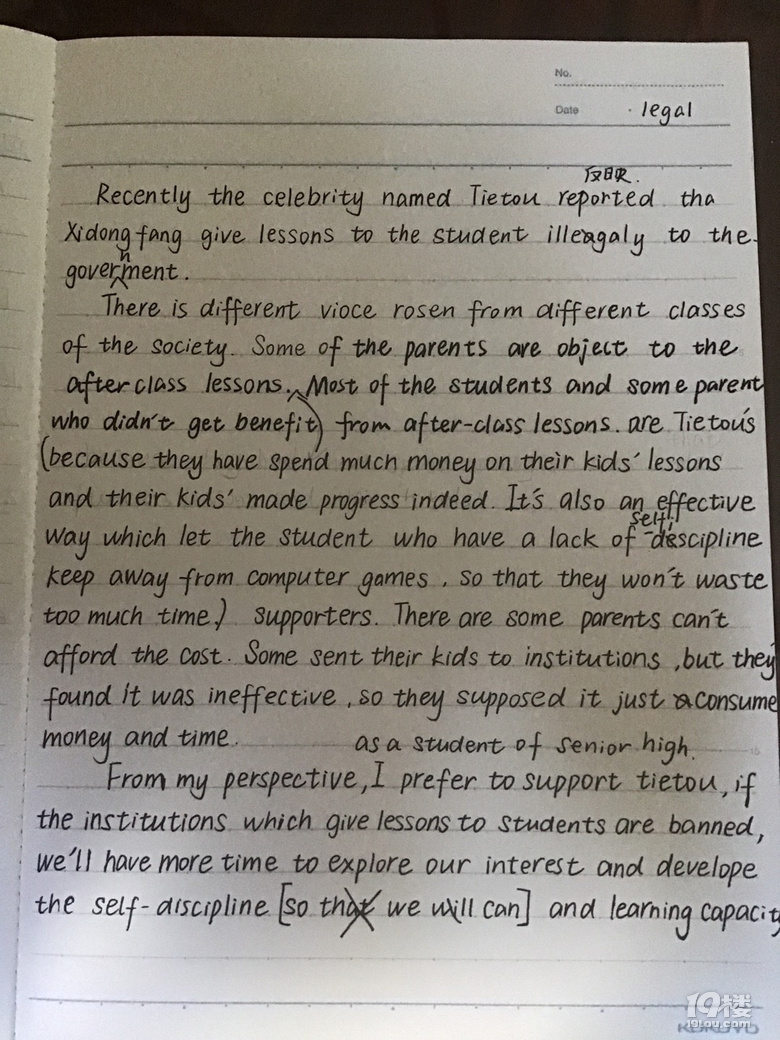 No.
Date · legal
反映.
Recently the celebrity named Tietou reported tha
Xidongfang give lessons to the student illeagaly to the
government.
There is different vioce rosen from different classes
of the society. Some of the parents are object to the
after class lessons. Most of the students and some parent
who didn't get benefit) from after-class lessons. are Tietou's
(because they have spend much money on their kids' lessons
and their kids' made progress indeed. It's also an effective
self
way which let the student who have a lack of -descipline
keep away from computer games, so that they won't waste
too much time.) supporters. There are some parents can't
afford the cost. Some sent their kids to institutions, but they
found it was ineffective, so they supposed it just consume
money and time. as a student of senior high.
From my perspective, I prefer to support tietou, if
the institutions which give lessons to students are banned,
we'll have more time to explore our interest and develope
the self-discipline [so that we will can] and learning capacity
19楼
19lou.com
KOKUYO